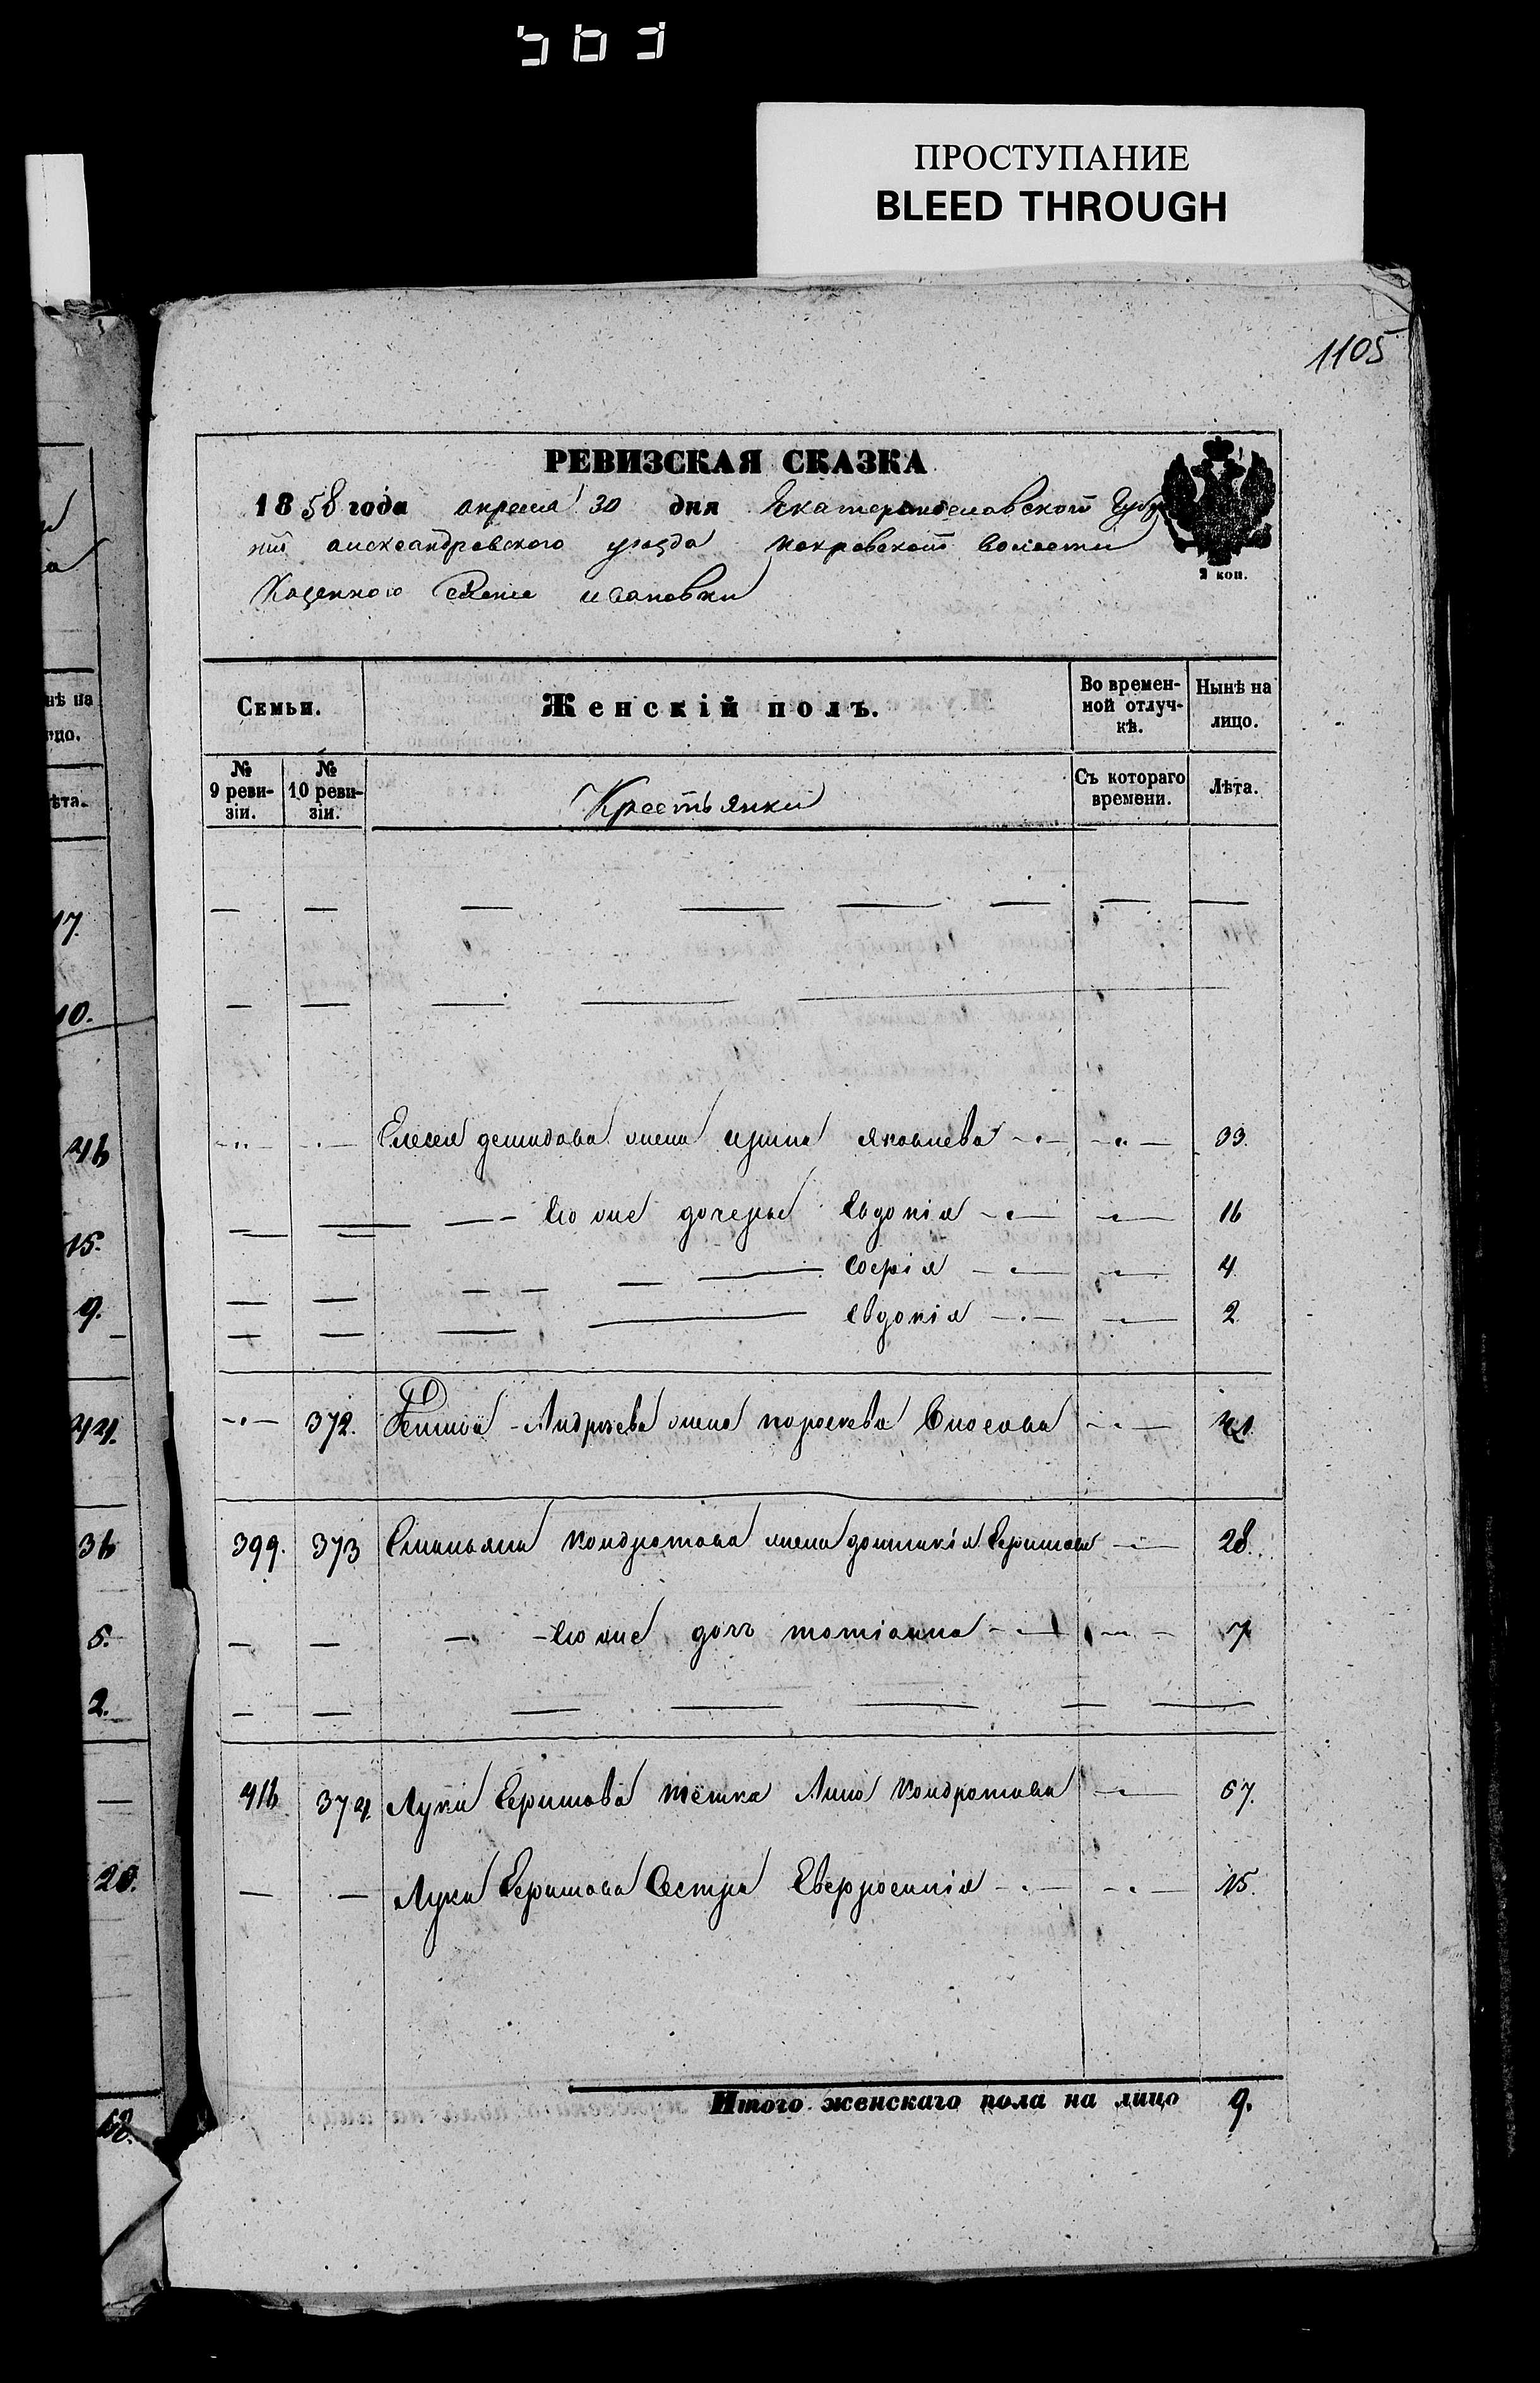 ПРОСТУПАНИЕ
BLEED THROUGH
1105
РЕВИЗСКАЯ СКАЗКА
1858 года апреля 30 дня Екатеринославской Губер
ніи александровского уезда покровской волости
Казенного Селенія ивановки
2 коп.
Семьи. Женскій полъ. Во времен-ной отлуч-кѣ. Нынѣ на лицо.
№ 9 реви-зіи. № 10 реви-зіи. Крестьянки Съ котораго времени. Лѣта.
Елесея демидова жена ирина яковлева 33.
Его же дочерье Евдокія 16
Софія 4
Евдокія 2
372. Андреева жена пороскева
399. 373 Емельяна кондратова жена домникія Ефимова 28.
Его же дочъ татіанна 7
416 374. Луки Ефимова тётка Анна Кондратова 67.
Луки Ефимова Сестра Евфросинія 15.
Итого женскаго пола на лицо 9.